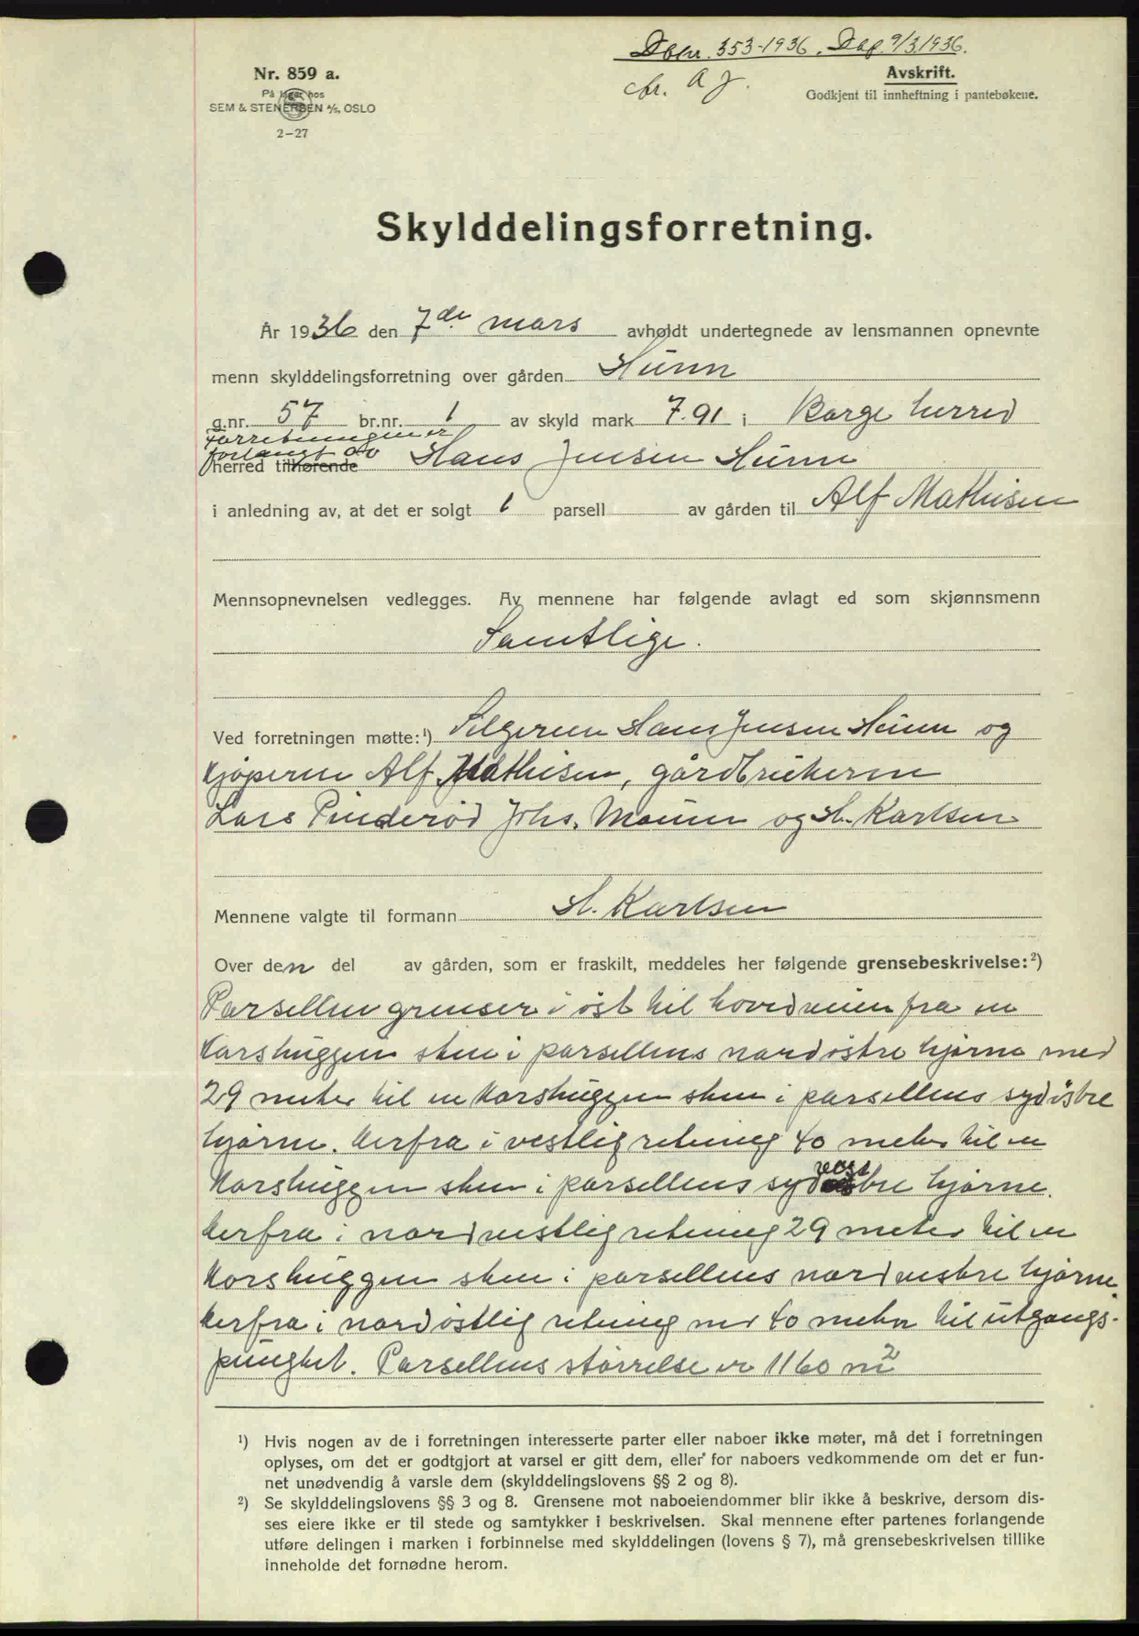 Dbnr. 353-1936. Dag. 9/3 1936.
Nr. 859 a.
Avskrift.
På lager hos
Godkjent til innheftning i pantebøkene.
SEM & STENERSEN A/S, OSLO
2-27
Skylddelingsforretning.
År 1936 den 7de mars avholdt undertegnede av lensmannen opnevnte
menn skylddelingsforretning over gården Hunn
g.nr. 57 br.nr. 1 av skyld mark 7.91 i Borge herred
Forretningen er
forlangt av
herred tilhørende Hans Jensen Hunn
i anledning av, at det er solgt 1 parsell av gården til Alf Mathisen
Mennsopnevnelsen vedlegges. Av mennene har følgende avlagt ed som skjønnsmenn
Samtlige.
Ved forretningen møtte:¹) Selgeren Hans Jensen Hunn og
kjøperen Alf Mathisen, gårdbrukerne
Lars Pinderød Johs. Maurr og H. Karlsen
Mennene valgte til formann H. Karlsen
Over den del av gården, som er fraskilt, meddeles her følgende grensebeskrivelse:²)
Parsellen grenser i øst til hovedveien fra en
korshuggen sten i parsellens nordøstre hjørne med
29 meter til en korshuggen sten i parsellens sydøstre
hjørne. Herfra i vestlig retning 40 meter til en
korshuggen sten i parsellens sydvestre hjørne.
Herfra i nordvestlig retning 29 meter til en
korshuggen sten i parsellens nordvestre hjørne.
Herfra i nordøstlig retning med 40 meter til utgangs-
punktet. Parsellens størrelse er 1160 m²
¹) Hvis nogen av de i forretningen interesserte parter eller naboer ikke møter, må det i forretningen
oplyses, om det er godtgjort at varsel er gitt dem, eller for naboers vedkommende om det er fun-
net unødvendig å varsle dem (skylddelingslovens §§ 2 og 8).
²) Se skylddelingslovens §§ 3 og 8. Grensene mot naboeiendommer blir ikke å beskrive, dersom dis-
ses eiere ikke er til stede og samtykker i beskrivelsen. Skal mennene efter partenes forlangende
utføre delingen i marken i forbinnelse med skylddelingen (lovens § 7), må grensebeskrivelsen tillike
inneholde det fornødne herom.